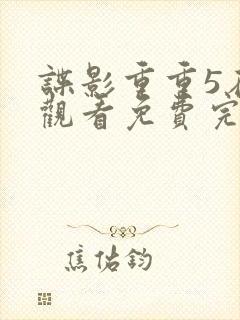 諜影重重5
觀看免費完
焦佑鈞